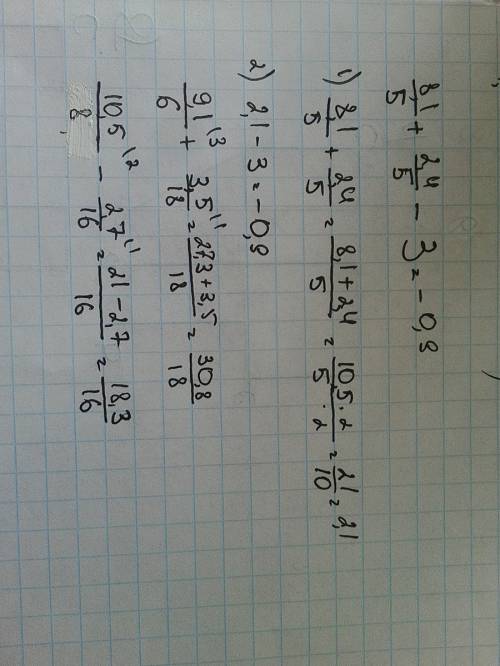 8,1/5 + 2,4/5 - 3 = -0,9
1) 8,1/5 + 2,4/5 = 8,1+2,4/5 = 10,5·2/5·2 = 21/10 = 2,1
2) 2,1 - 3 = -0,9
9,1/6 \3 + 3,5/18 \1 = 27,3+3,5/18 = 30,8/18
10,5/8 \2 - 2,7/16 \1 = 21-2,7/16 = 18,3/16